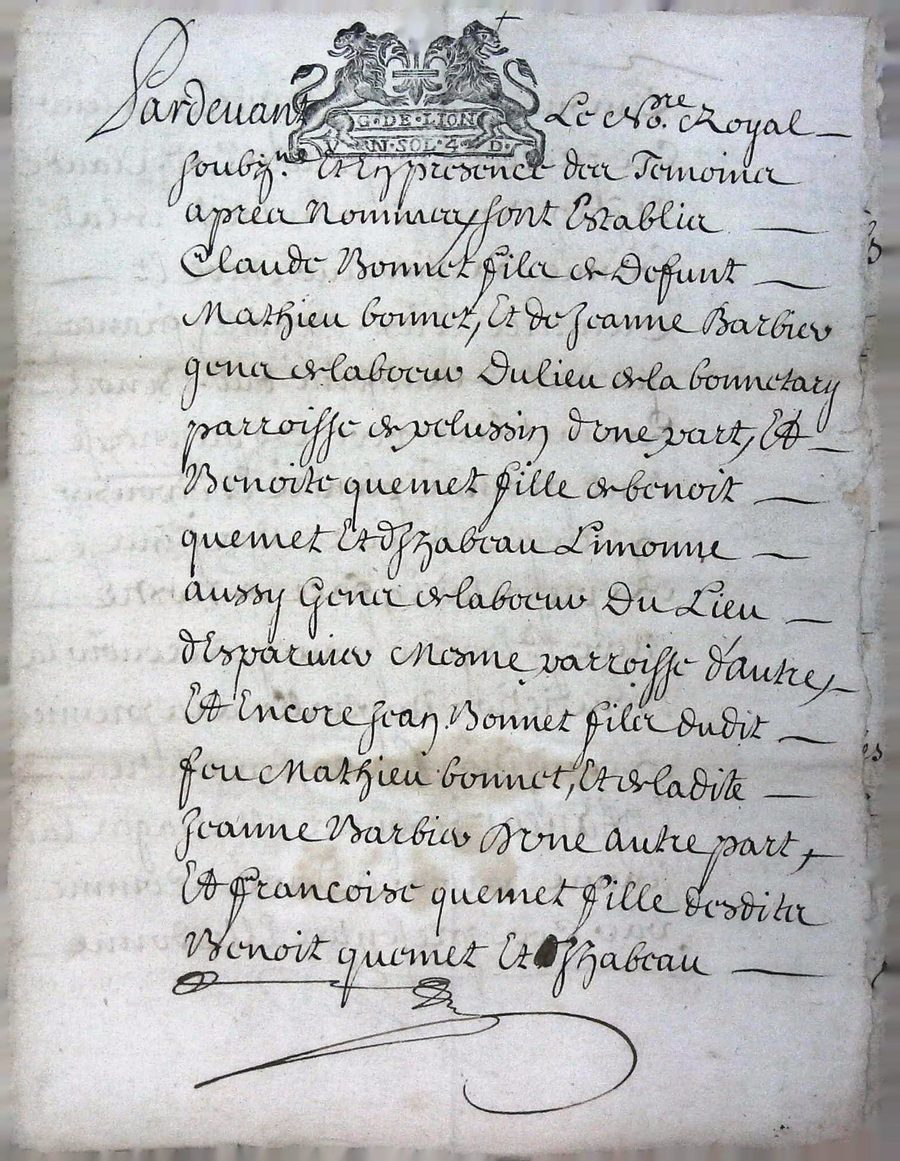 Pardevant Le No.re Royal
G·DE·LION
VN·SOL·4·D·
soubz.ne Et En presence des Temoins
apres Nommes, sont Establis
Claude Bonnet fils de Defunt
Mathieu bonnet, Et de Jeanne Barbier
gens de laboeur Du lieu de la bonnetary
parroisse de pelussin d'une part, Et
Benoite quemet fille de benoit
quemet Et d'Izabeau Limonne
aussy Gens de laboeur Du Lieu
d'Esparvier Mesme parroisse d'autre,
Et Encore Jean Bonnet fils dudit
feu Mathieu bonnet, Et de ladite
Jeanne Barbier D'une autre part,
Et francoise quemet fille desdits
Benoit quemet Et d'Izabeau